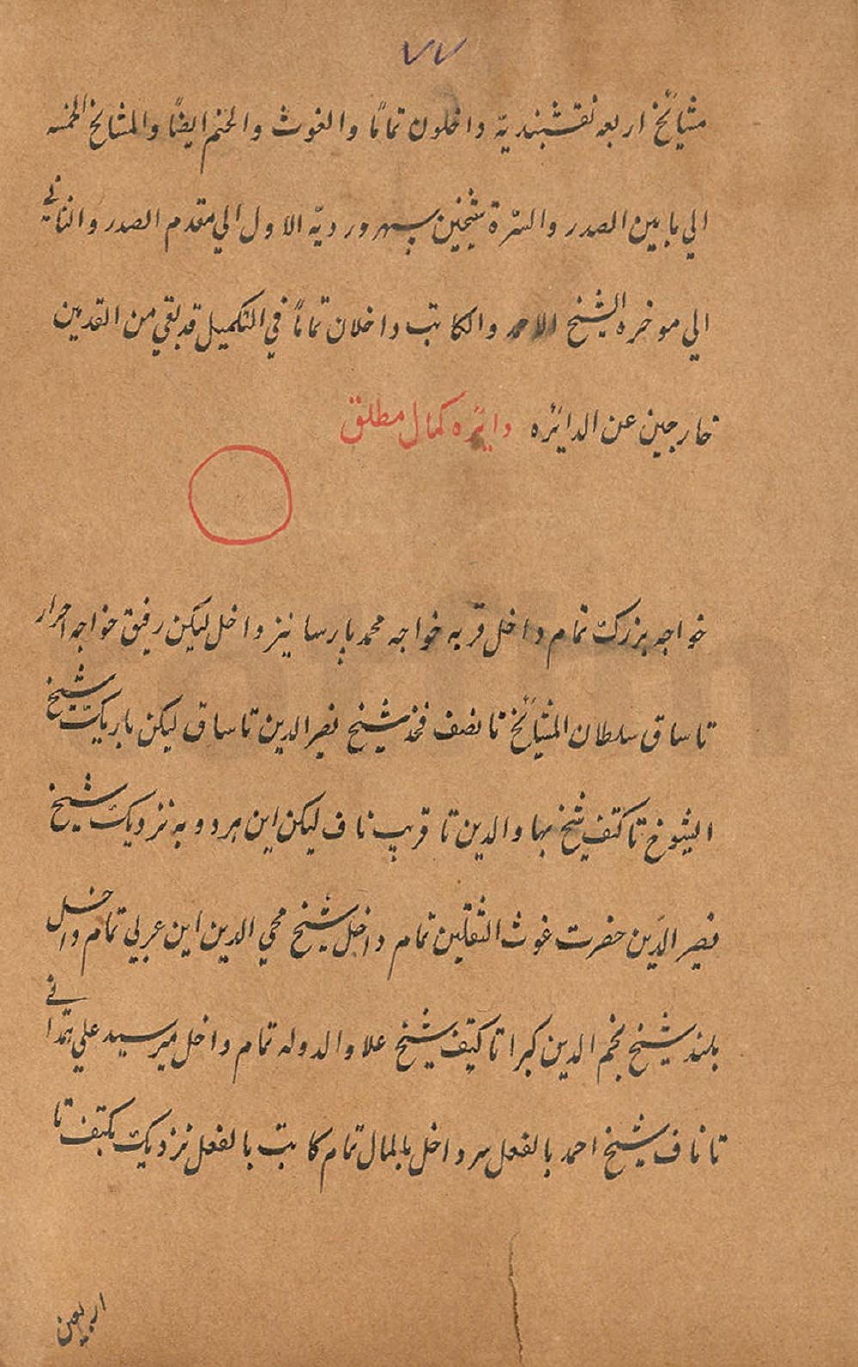 ٧٧
مشایٔخ اربعه نقشبندیّه داخلون تمامًا والغوث والختم ایضًا والمشایخ الخمسه
الي ما بین الصدر والسّرة شیخین سهروردیّه الاول الي مقدم الصدر والثاني
الي موخره الشیخ الاحمد والکاتب داخلان تمامًا في التکمیل قد بقي من القدمین
خارجین عن الدائره دائره کمال مطلق
خواجه بزرک تمام داخل فربه خواجه محمد پارسا نیز داخل لیکن رفیق خواجه احرار
تا ساق سلطان المشایٔخ تا نصف فخذ شیخ نصیر الدین تا ساق لیکن باریک شیخ
الشیوخ تا کتف شیخ بهاوالدین تا قریب ناف لیکن این هر دو به نزدیک شیخ
نصیر الدّین حضرت غوث الثقلین تمام داخل شیخ محي الدین ابن عربی تمام داخل
بلند شیخ نجم الدین کبرا تا کتف شیخ علاوالدوله تمام داخل میر سید علي همدانے
تا ناف شیخ احمد بالفعل سر داخل بالمال تمام کاتب بالفعل نزدیک بکتف تا
اربعین